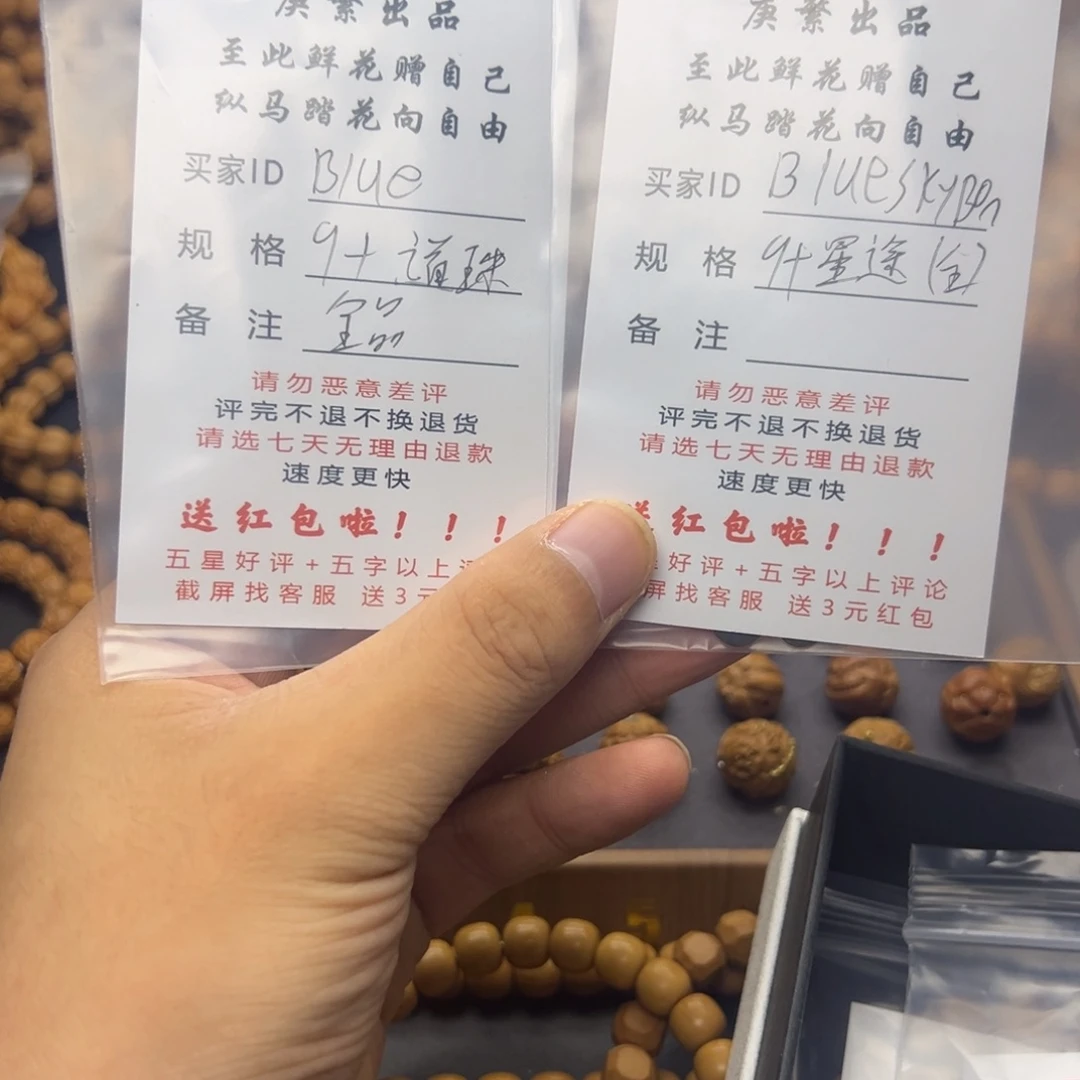 庚繁出品
至此鲜花赠自己
纵马踏花向自由
买家ID Blue
规格 9+道珠
备注 全品
请勿恶意差评
评完不退不换退货
请选七天无理由退款
速度更快
送红包啦！！！
五星好评+五字以上评
截屏找客服 送3元
庚繁出品
至此鲜花赠自己
纵马踏花向自由
买家ID BlueskyBon
规格 9+星途(全)
备注
请勿恶意差评
评完不退不换退货
请选七天无理由退款
速度更快
送红包啦！！！
好评+五字以上评论
屏找客服 送3元红包